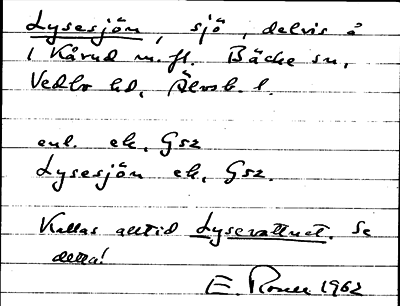 Lysesjön, sjö, delvis å
1 Kårud m. fl. Bäcke sn,
Vedbo hd, Älvsb. l.
enl. ek. Gsz
Lysesjön ek. Gsz.
Kallas alltid Lysevattnet. Se
detta!
E. Rosen 1962